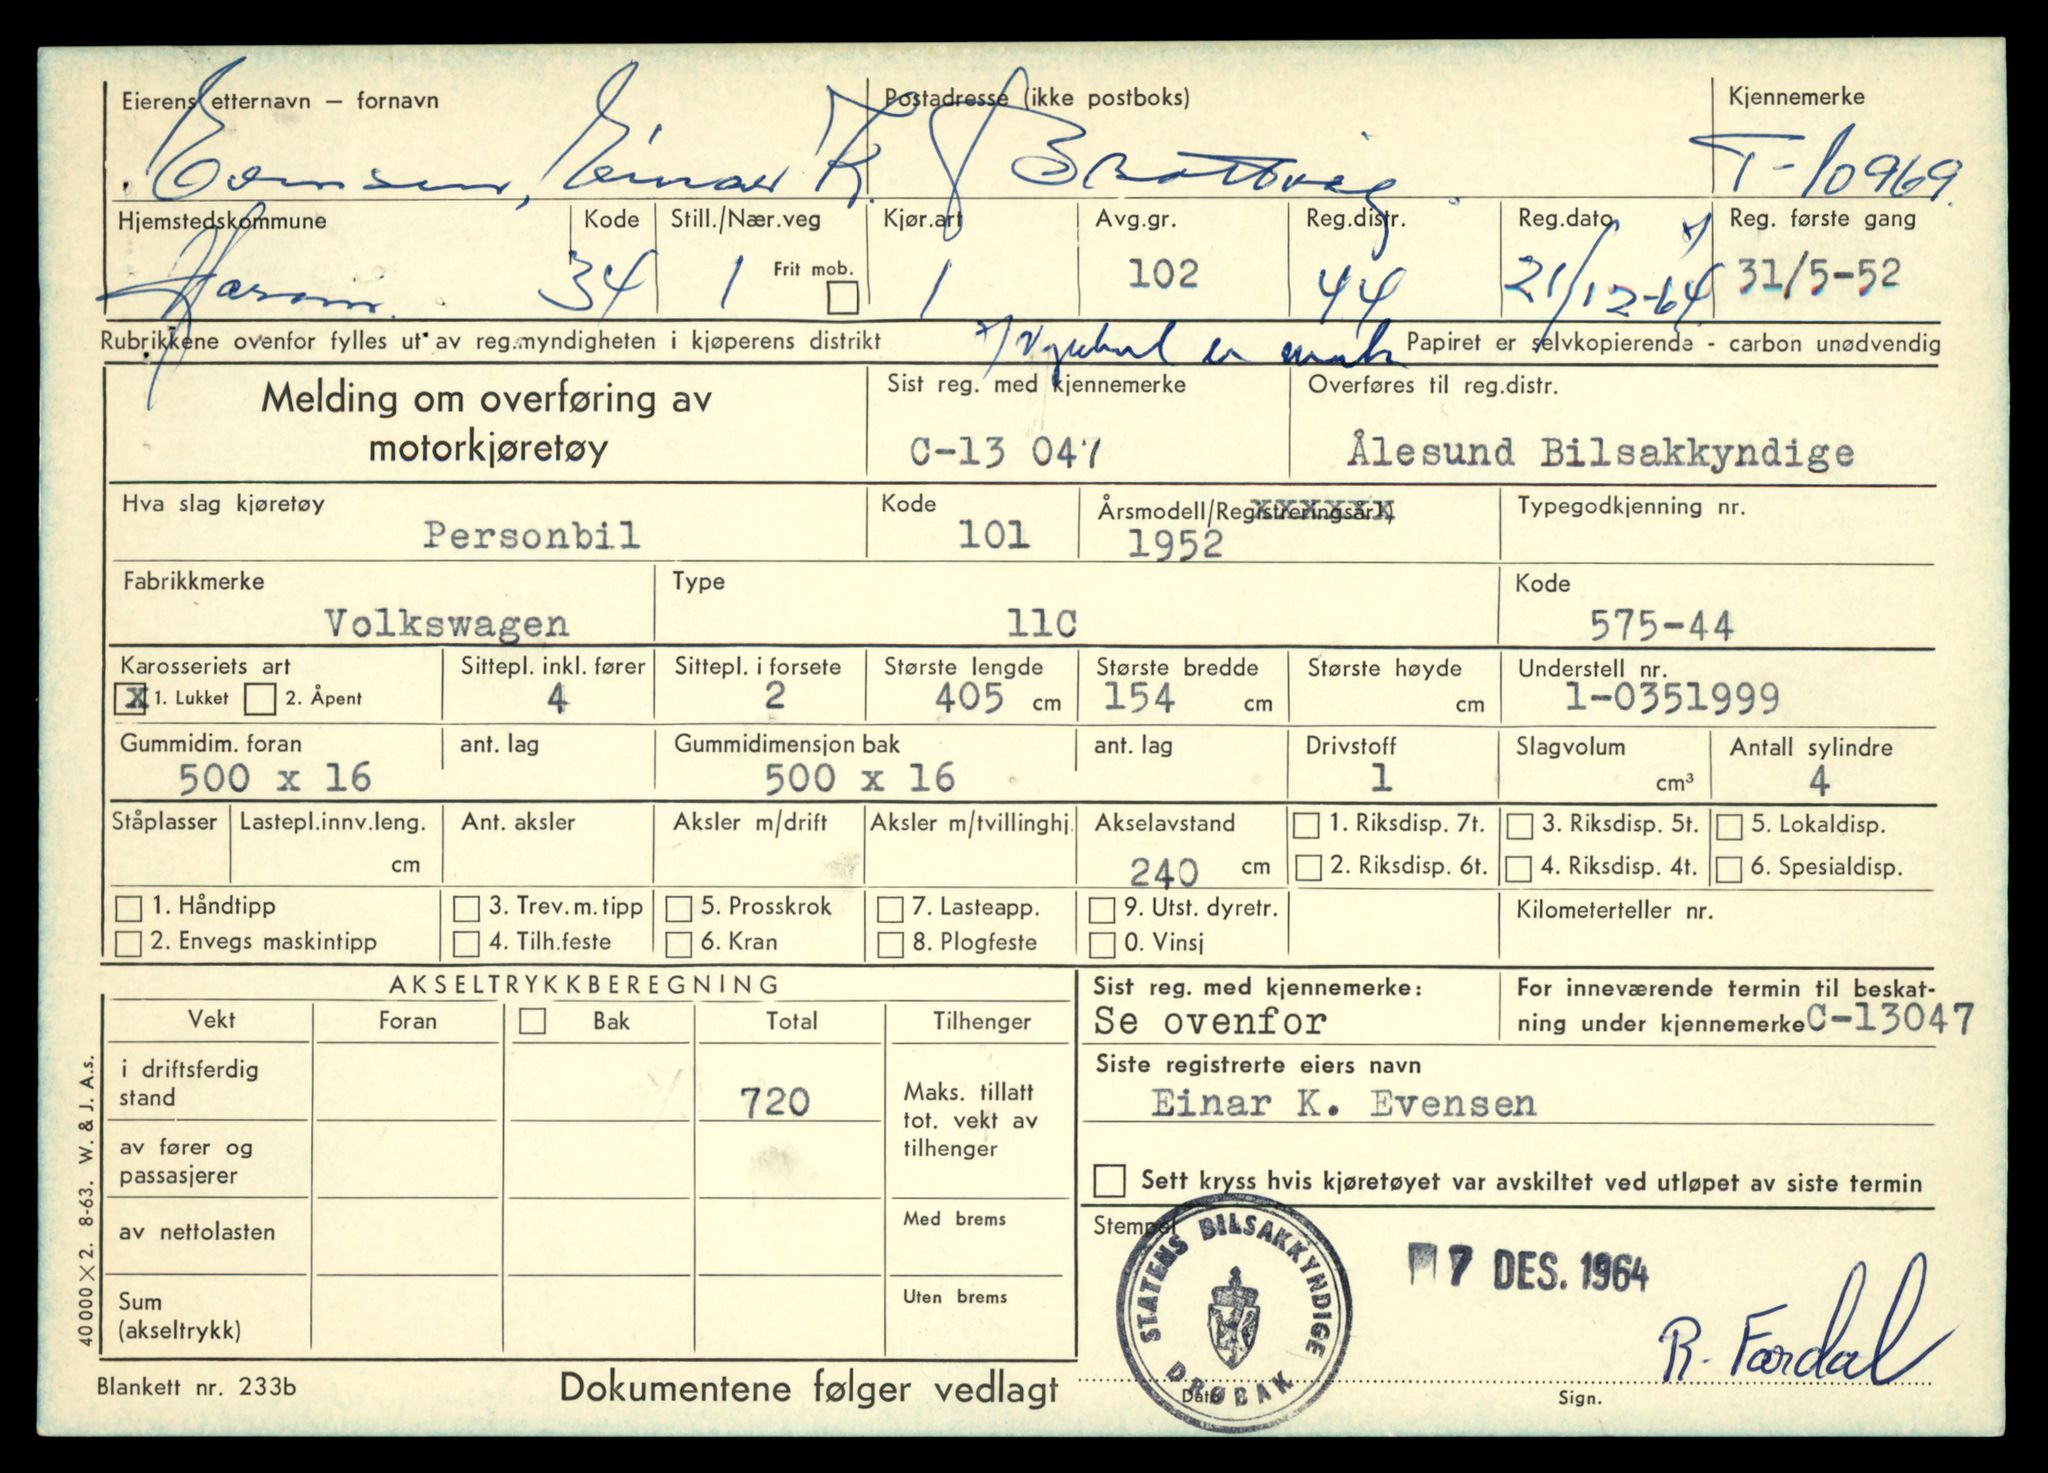 Eierens etternavn – fornavn
Postadresse (ikke postboks)
Kjennemerke
Evensen, Einar K.
Brattvåg
T-10969
Hjemstedskommune Kode Still./Nær.veg Kjør.art Avg.gr. Reg.distr. Reg.dato Reg. første gang
Haram 34 1 Frit mob. 1 102 44 21/12-64 x) 31/5-52
Rubrikkene ovenfor fylles ut av reg.myndigheten i kjøperens distrikt
x) er
Papiret er selvkopierende - carbon unødvendig
Melding om overføring av
motorkjøretøy
Sist reg. med kjennemerke
C-13 047
Overføres til reg.distr.
Ålesund Bilsakkyndige
Hva slag kjøretøy Kode Årsmodell/Registreringsår 1) Typegodkjenning nr.
Personbil 101 1952
Fabrikkmerke Type Kode
Volkswagen 11C 575-44
Karosseriets art Sittepl. inkl. fører Sittepl. i forsete Største lengde Største bredde Største høyde Understell nr.
x 1. Lukket 2. Åpent 4 2 405 cm 154 cm cm 1-0351999
Gummidim. foran ant. lag Gummidimensjon bak ant. lag Drivstoff Slagvolum Antall sylindre
500 x 16 500 x 16 1 cm³ 4
Ståplasser Lastepl.innv.leng. Ant. aksler Aksler m/drift Aksler m/tvillinghj. Akselavstand 1. Riksdisp. 7t. 3. Riksdisp. 5t. 5. Lokaldisp.
cm 240 cm 2. Riksdisp. 6t. 4. Riksdisp. 4t. 6. Spesialdisp.
1. Håndtipp 3. Trev.m.tipp 5. Prosskrok 7. Lasteapp. 9. Utst. dyretr. Kilometerteller nr.
2. Envegs maskintipp 4. Tilh.feste 6. Kran 8. Plogfeste 0. Vinsj
AKSELTRYKKBEREGNING
Vekt Foran Bak Total Tilhenger
i driftsferdig
stand
720
Maks. tillatt
tot. vekt av
tilhenger
av fører og
passasjerer
av nettolasten
Med brems
Sum
(akseltrykk)
Uten brems
Sist reg. med kjennemerke:
Se ovenfor
For inneværende termin til beskat-
ning under kjennemerke C-13047
Siste registrerte eiers navn
Einar K. Evensen
Sett kryss hvis kjøretøyet var avskiltet ved utløpet av siste termin
Stempel
STATENS BILSAKKYNDIGE
DRØBAK
7 DES. 1964
R. Fardal
Dato
Sign.
40 000 × 2. 8-63. W. & J. A.s.
Blankett nr. 233b
Dokumentene følger vedlagt